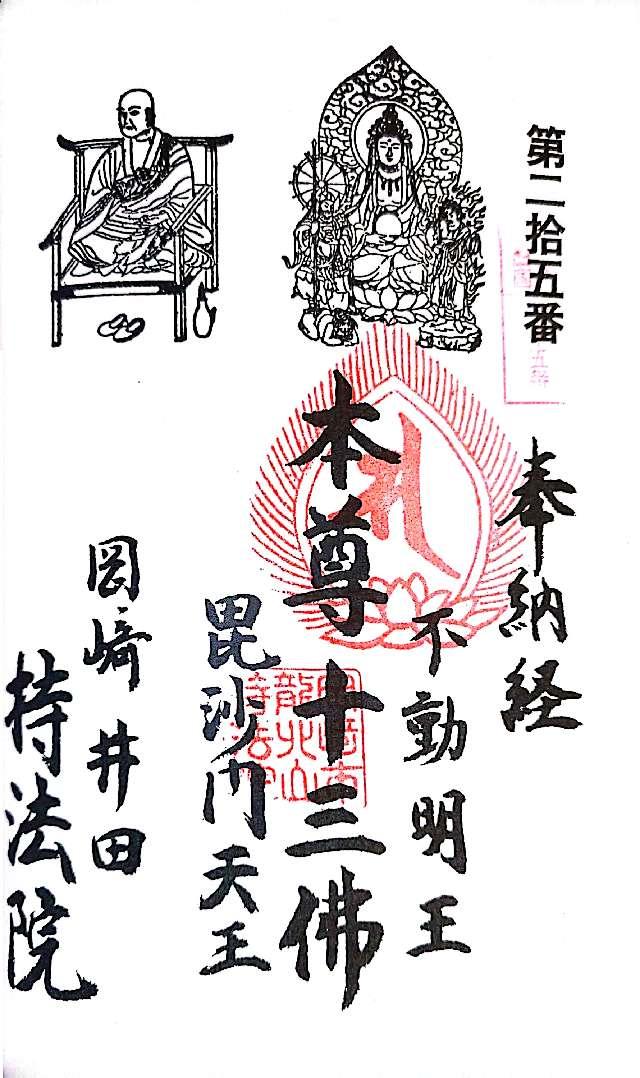 第二拾五番
奉納経
不動明王
本尊十三佛
毘沙門天王
岡崎井田
持法院
岡崎市
龍北山
持法院